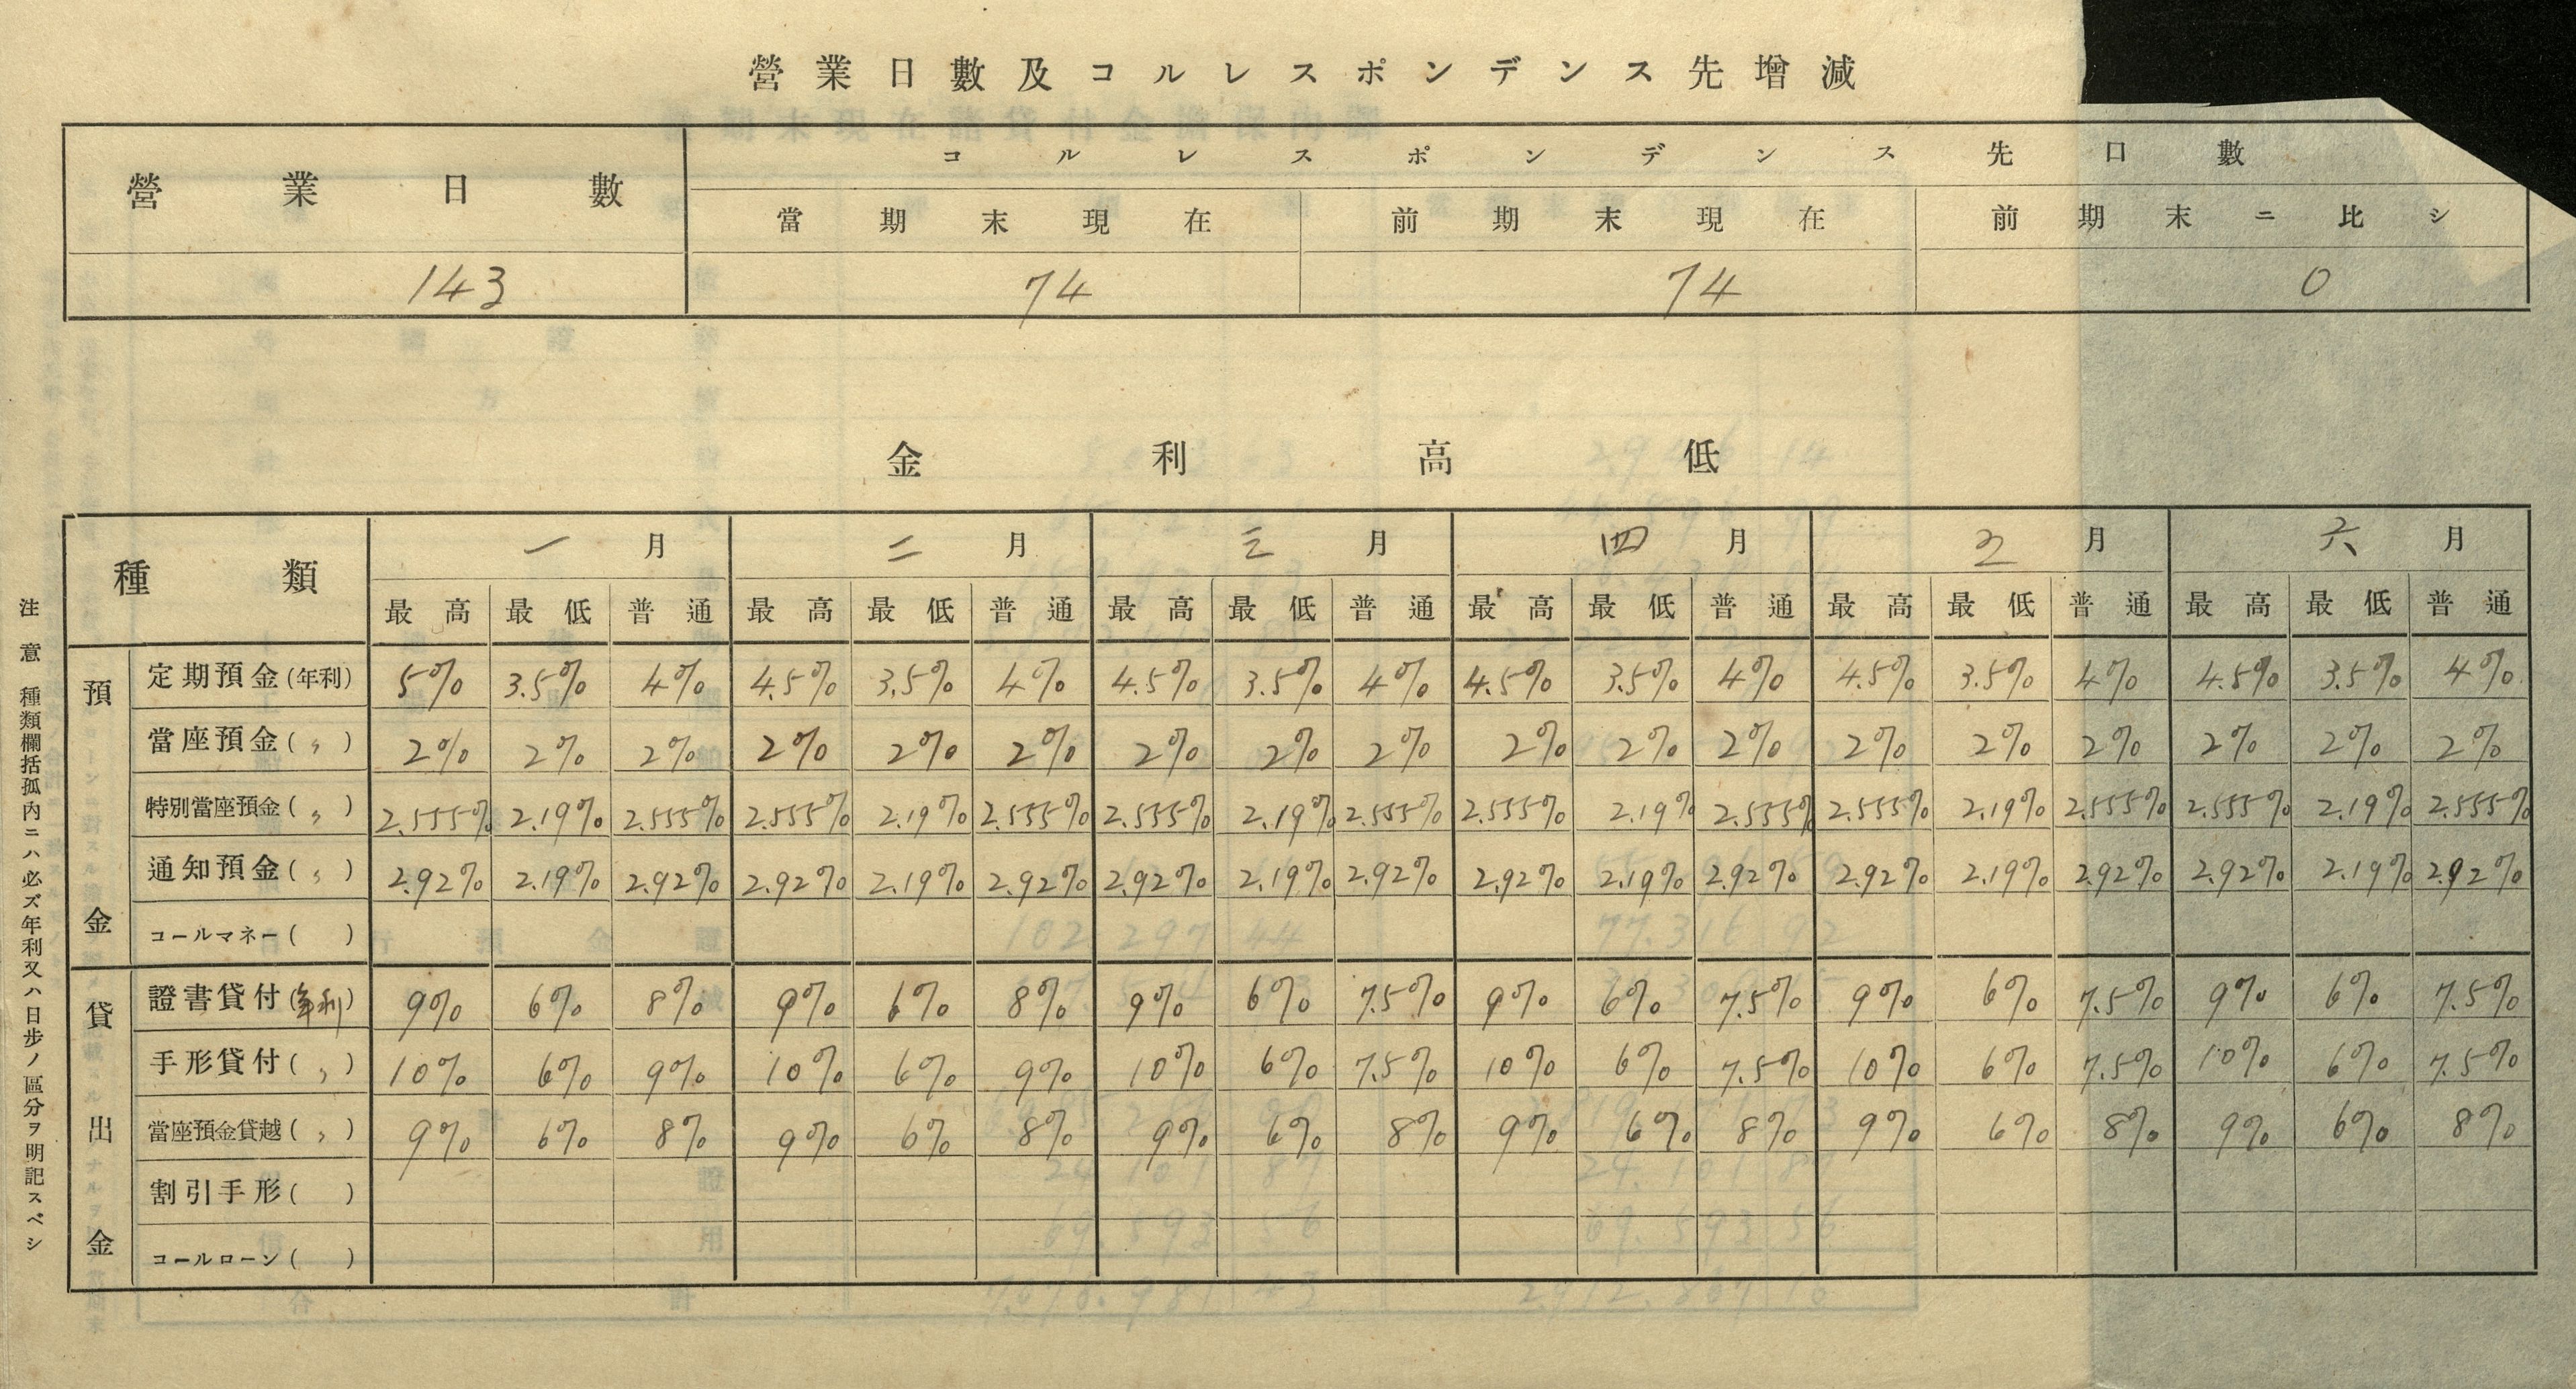 營業日數及コルレスポンデンス先增減
營業日數 コルレスポンデンス先口數
當期末現在 前期末現在 前期末ニ比シ
143 74 74 0
金利高低
種類 一月 二月 三月 四月 五月 六月
最高 最低 普通 最高 最低 普通 最高 最低 普通 最高 最低 普通 最高 最低 普通 最高 最低 普通
預金
定期預金(年利) 5% 3.5% 4% 4.5% 3.5% 4% 4.5% 3.5% 4% 4.5% 3.5% 4% 4.5% 3.5% 4% 4.5% 3.5% 4%
當座預金(〃) 2% 2% 2% 2% 2% 2% 2% 2% 2% 2% 2% 2% 2% 2% 2% 2% 2% 2%
特別當座預金(〃) 2.555% 2.19% 2.555% 2.555% 2.19% 2.555% 2.555% 2.19% 2.555% 2.555% 2.19% 2.555% 2.555% 2.19% 2.555% 2.555% 2.19% 2.555%
通知預金(〃) 2.92% 2.19% 2.92% 2.92% 2.19% 2.92% 2.92% 2.19% 2.92% 2.92% 2.19% 2.92% 2.92% 2.19% 2.92% 2.92% 2.19% 2.92%
コールマネー( )
貸出金
證書貸付(年利) 9% 6% 8% 9% 6% 8% 9% 6% 7.5% 9% 6% 7.5% 9% 6% 7.5% 9% 6% 7.5%
手形貸付(〃) 10% 6% 9% 10% 6% 9% 10% 6% 7.5% 10% 6% 7.5% 10% 6% 7.5% 10% 6% 7.5%
當座預金貸越(〃) 9% 6% 8% 9% 6% 8% 9% 6% 8% 9% 6% 8% 9% 6% 8% 9% 6% 8%
割引手形( )
コールローン( )
注意 種類欄括孤內ニハ必ズ年利又ハ日步ノ區分ヲ明記スベシ